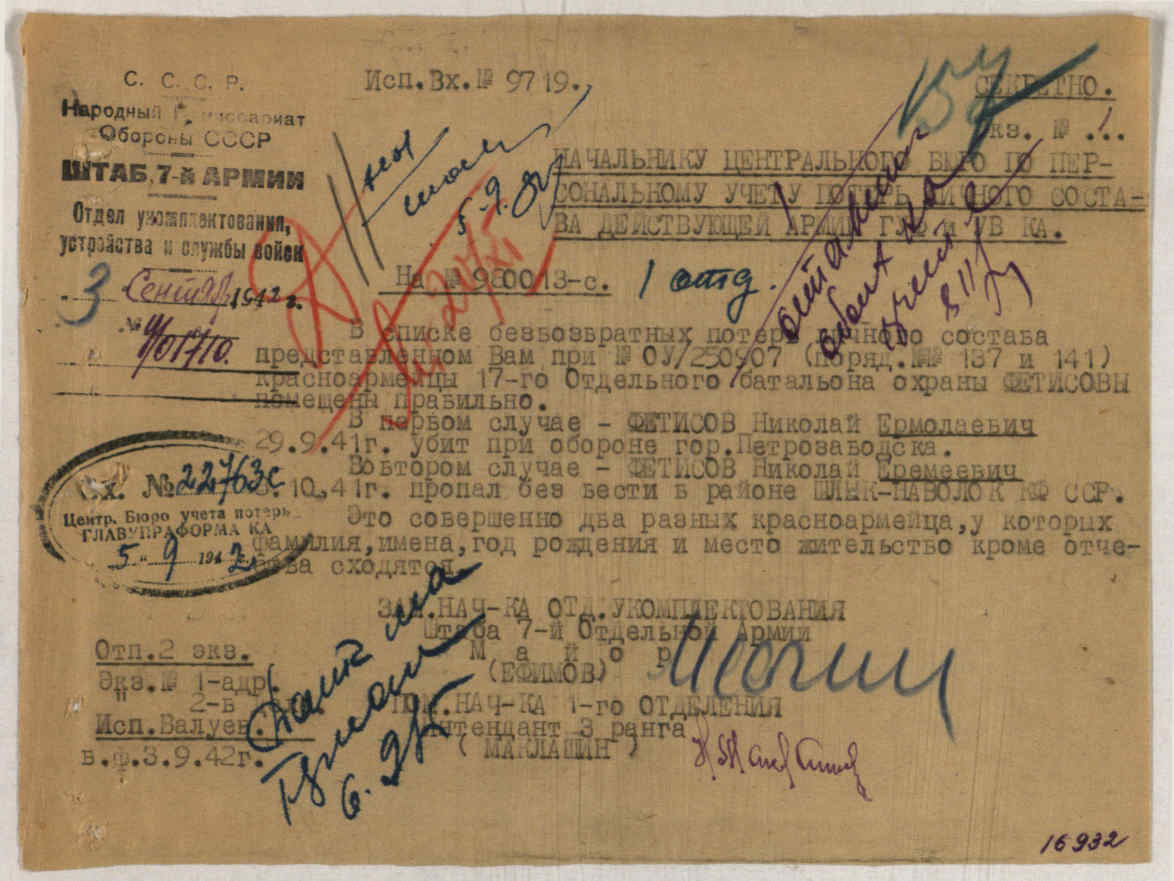 С. С. С. Р.
Народный Комиссариат
Обороны СССР
ШТАБ 7-й АРМИИ
Отдел укомплектования,
устройства и службы войск
3 Сентября 1942 г.
№
Исп.Вх.№ 9719.
СЕКРЕТНО.
Экз. № 1..
НАЧАЛЬНИКУ ЦЕНТРАЛЬНОГО БЮРО ПО ПЕР-
СОНАЛЬНОМУ УЧЕТУ ПОТЕРЬ ЛИЧНОГО СОСТА-
ВА ДЕЙСТВУЮЩЕЙ АРМИИ ГУФ и УВ КА.
5.9.
На № 980013-с.
1 отд.
В списке безвозвратных потерь личного состава
представленном Вам при № ОУ/250907 (поряд.№№ 137 и 141)
красноармейцы 17-го Отдельного батальона охраны ФЕТИСОВЫ
помещены правильно.
В первом случае - ФЕТИСОВ Николай Ермолаевич
29.9.41г. убит при обороне гор.Петрозаводска.
Вовтором случае - ФЕТИСОВ Николай Еремеевич
10.41г. пропал без вести в районе ШЛЫК-НАВОЛОК КФ ССР.
Это совершенно два разных красноармейца,у которых
фамилия,имена,год рождения и место жительство кроме отче-
ства сходятся.
Вх. № 22763с
Центр. Бюро учета потерь
ГЛАВУПРАФОРМА КА
5 " 9 1942
ЗАМ.НАЧ-КА ОТД.УКОМПЛЕКТОВАНИЯ
Штаба 7-й Отдельной Армии
М а й о р
(ЕФИМОВ)
ПОМ.НАЧ-КА 1-го ОТДЕЛЕНИЯ
Интендант 3 ранга
( МАКЛАШИН )
Отп.2 экз.
Экз.№ 1-адр.
" 2-в
Исп.Валуев.
в.ф.3.9.42г.
16932